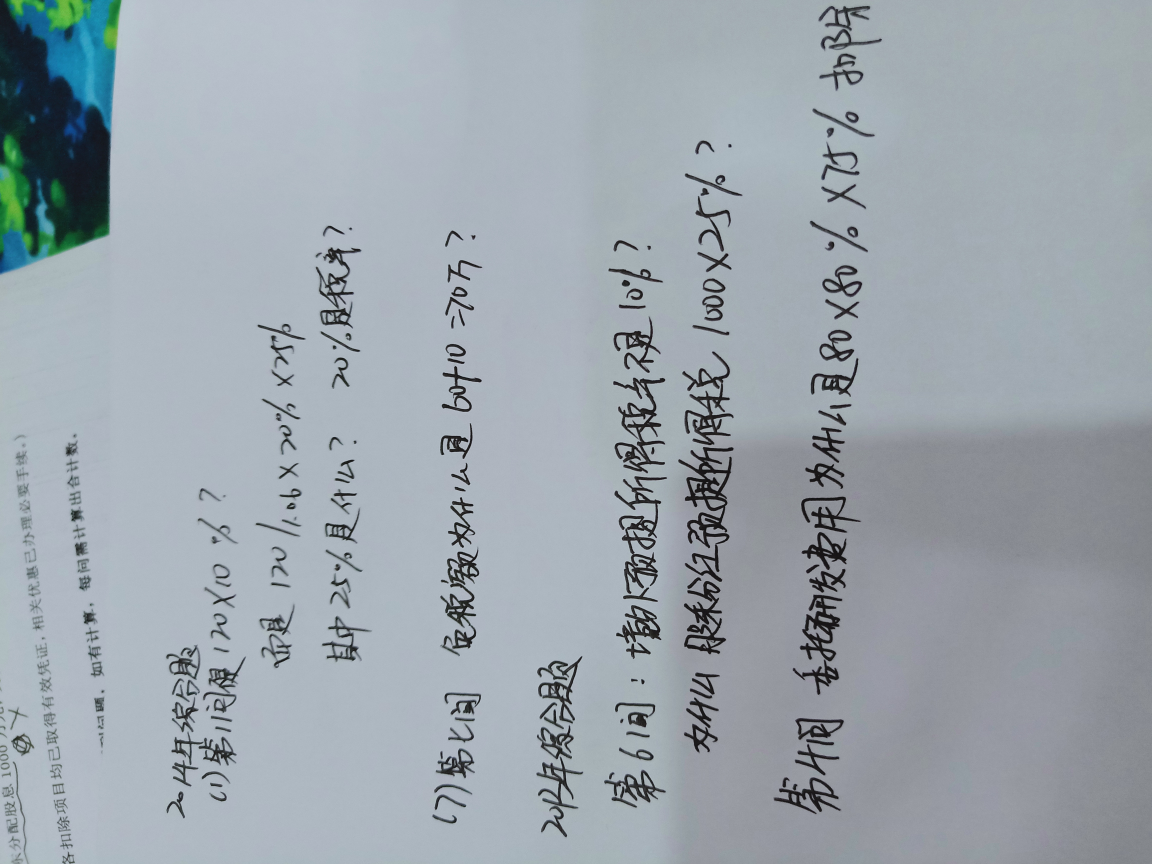 东分配股息1000万元
各扣除项目均已取得有效凭证,相关优惠已办理必要手续。)
问题,如有计算,每问需计算出合计数。
2014年综合题
(1)第1问便120×10%?
而是120/1.06×20%×25%
其中25%是什么? 20%是税率?
(7)第七问 免税额为什么是60+10=70万?
2012年综合题
第6问:境外预提所得税率不是10%?
为什么股利分红预提所得税1000×25%?
第4问 委托研发费用为什么是80×80%×75%扣除